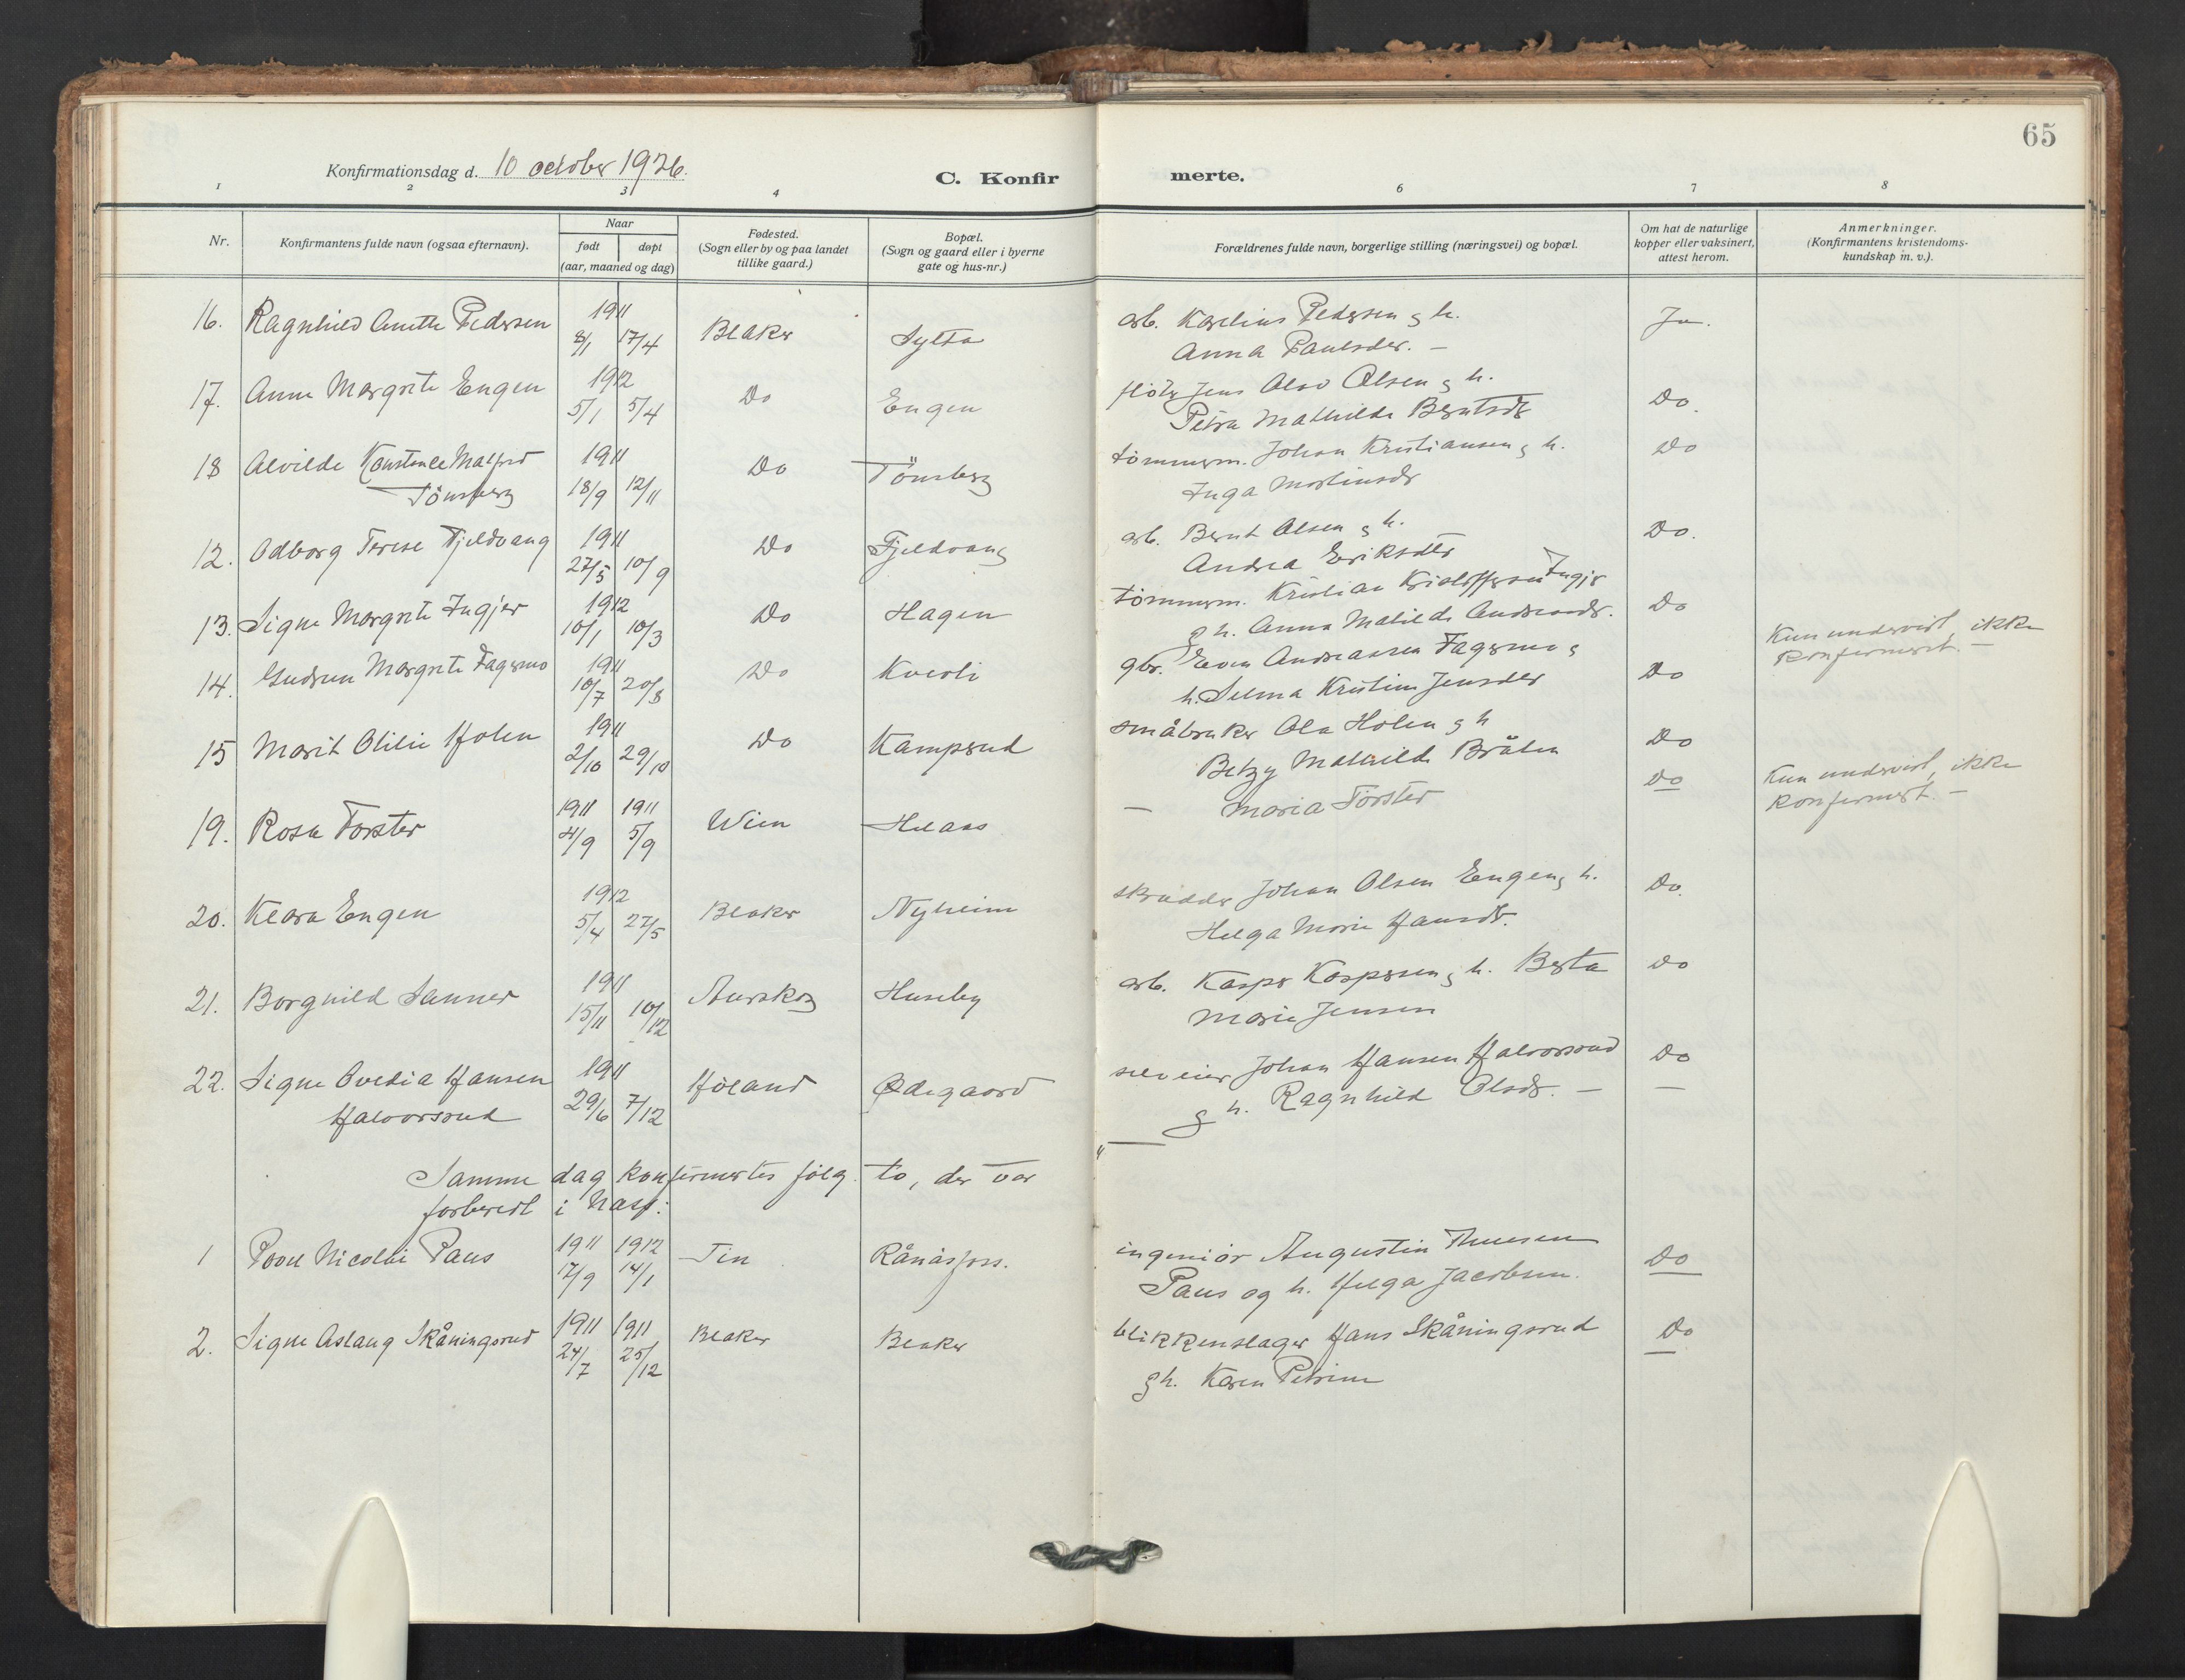 65
Konfirmationsdag d. 10 october 1926.
C. Konfirmerte.
1 2 3 4 6 7 8
Nr.
Konfirmantens fulde navn (ogsaa efternavn).
Naar
født døpt
(aar, maaned og dag)
Fødested.
(Sogn eller by og paa landet
tillike gaard.)
Bopæl.
(Sogn og gaard eller i byerne
gate og hus-nr.)
Forældrenes fulde navn, borgerlige stilling (næringsvei) og bopæl.
Om hat de naturlige
kopper eller vaksinert,
attest herom.
Anmerkninger.
(Konfirmantens kristendoms-
kundskap m. v.).
16. Ragnhild Anette Pedersen 1911 8/1 17/4 Blaker Sylta arb. Karelius Pedersen g h. Ja.
Anna Paulsdtr. —
17. Anna Margrete Engen 1912 5/1 5/4 Do Engen Jens Olav Olsen g h. Do.
Petra Mathilde Berntsdtr
18 Alvilde Konstance Matfrid 1911 18/9 12/11 Do Tönsberg tömmerm. Johan Kristiansen g h. Do
Tönsberg Inga Martinsdtr
12. Odborg Terese Fjeldvang 1911 27/5 10/9 Do Fjeldvang arb. Bernt Olsen g h. Do.
Andrea Eriksdtr
13. Signe Margrete Ingjer 1912 10/1 10/3 Do Hagen tömmerm. Kristian Kristoffersen Ingjer Do
g h. Anna Matilde Andreasdtr.
14. Gudrun Margrete Fagermo 1911 10/7 20/8 Do Kvevli gbr. Even Andreassen Fagermo g Do Kun undervist, ikke
h. Selma Kristine Jensdtr konfirmert. —
15 Marit Otilie Holen 1911 2/10 29/10 Do Kampsrud småbruker Ola Holen g h Do
Betzy Mathilde Bråten
19. Rosa Forster 1911 4/9 1911 5/9 Wien Helaas — Maria Forster Do Kun undervist, ikke
konfirmert. —
20. Klara Engen 1912 5/4 27/5 Blaker Nyheim skrädder Johan Olsen Engen g h. Do.
Helga Marie Hansdtr.
21. Borghild Sanner 1911 15/11 10/12 Aurskog Huseby arb. Kasper Kaspersen g h. Berta Do
Marie Jensen
22. Signe Ovedia Hansen 1911 29/6 7/12 Höland Ødegaard selveier Johan Hansen Halvorsrud Do
Halvorsrud g h. Ragnhild Olsdtr. — —
Samme dag konfirmertes fölg. to, der var
forberedt i :
1 Povel Nicolai Paus 1911 17/9 1912 14/1 Tin Rånåsfoss. ingeniör Augustin Thuesen Do
Paus og h. Helga Jacobsen.
2. Signe Aslaug Skåningsrud 1911 24/7 1911 25/12 Blaker Blaker blikkenslager Hans Skåningsrud Do
g h. Karen Petrine